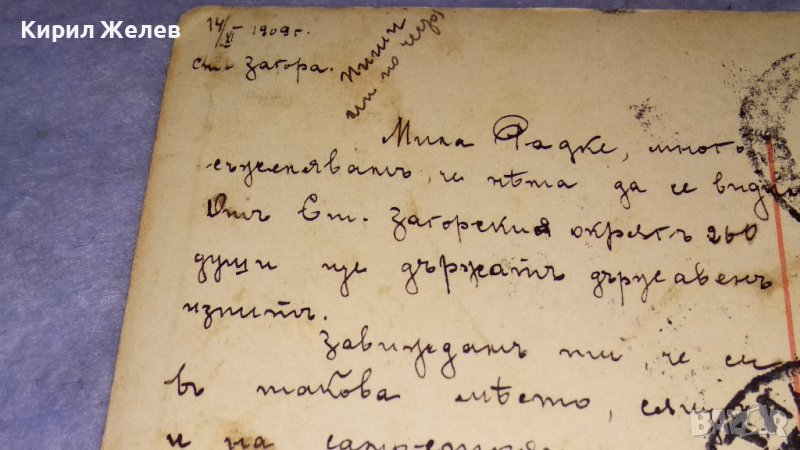 Кирил Желев
14/XI 1909 г.
Ст. Загора.
Пиши
ми по
Мила Радке, много
съжелявамъ, че нѣма да се види
Отъ Ст. Загорския окрягъ 260
души ще държатъ държавенъ
изпитъ.
Завиждамъ ти, че си
въ такова мѣсто,
и на
BAZAR